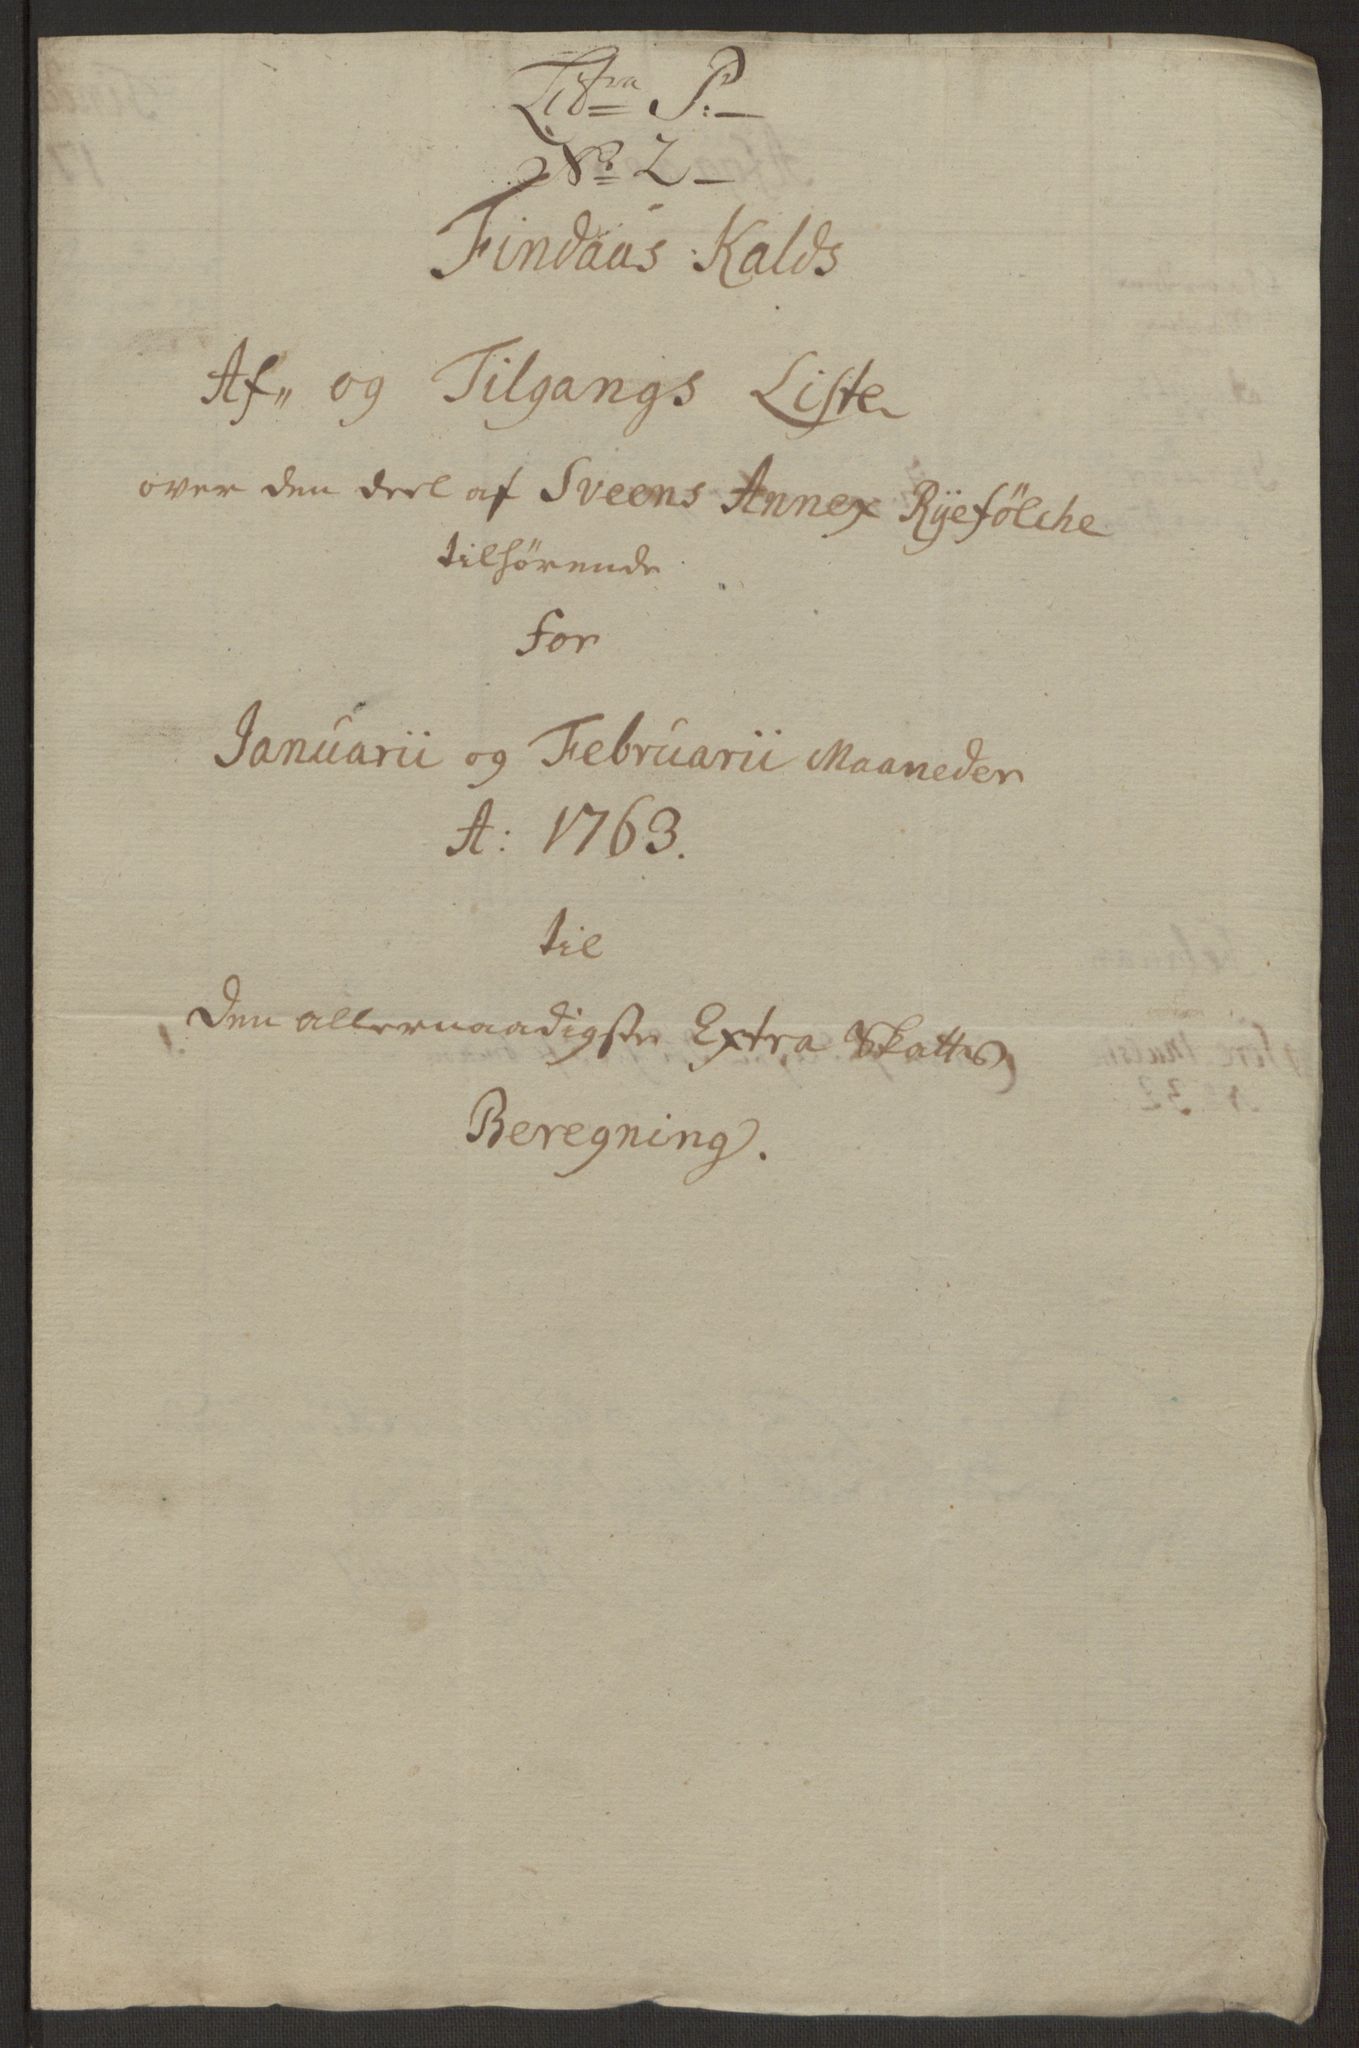 Littra P:
No 2
Findaas Kalds
Af,, og Tilgangs Liste
over den deel af Sveens Annex Ryefölche
tilhørende
for
Januarii og Februarii Maaneder
A: 1763.
til
Den allernaadigste Extra Skattes
Beregning.